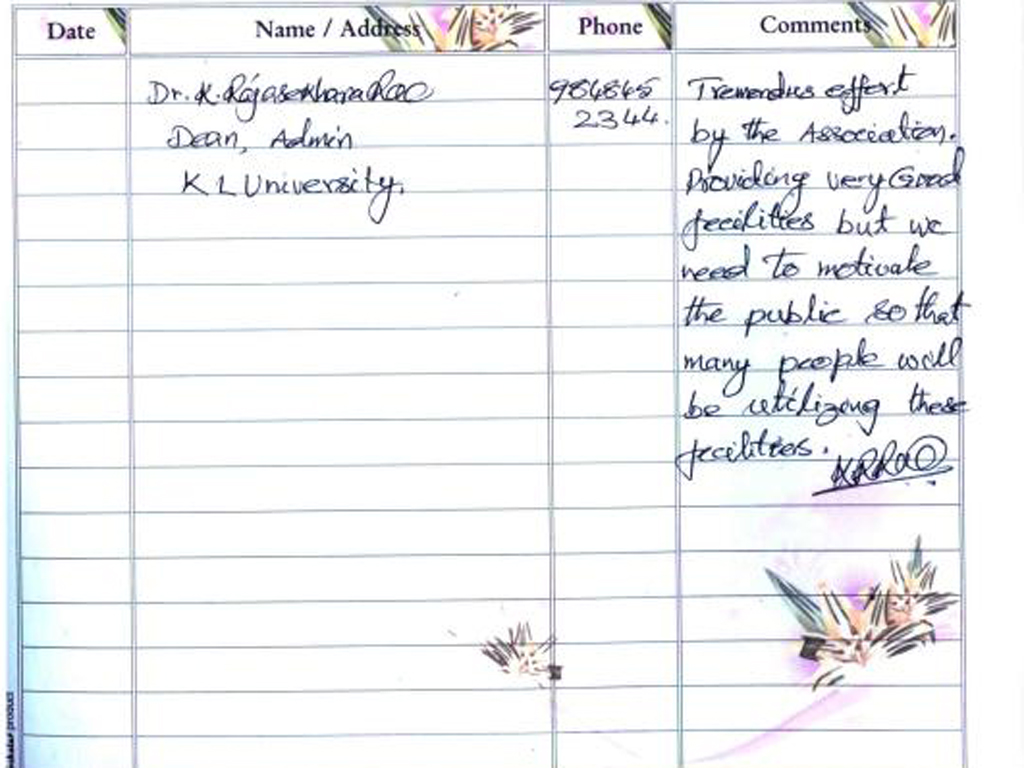 Date Name / Address Phone Comments
Dr. K. RajasekharaRao 984845 Tremendus effort
Dean, Admin 2344. by the Association.
K L University, Providing very Good
fecilities but we
need to motivate
the public so that
many people will
be utilizing these
fecilities.
KRRao
product